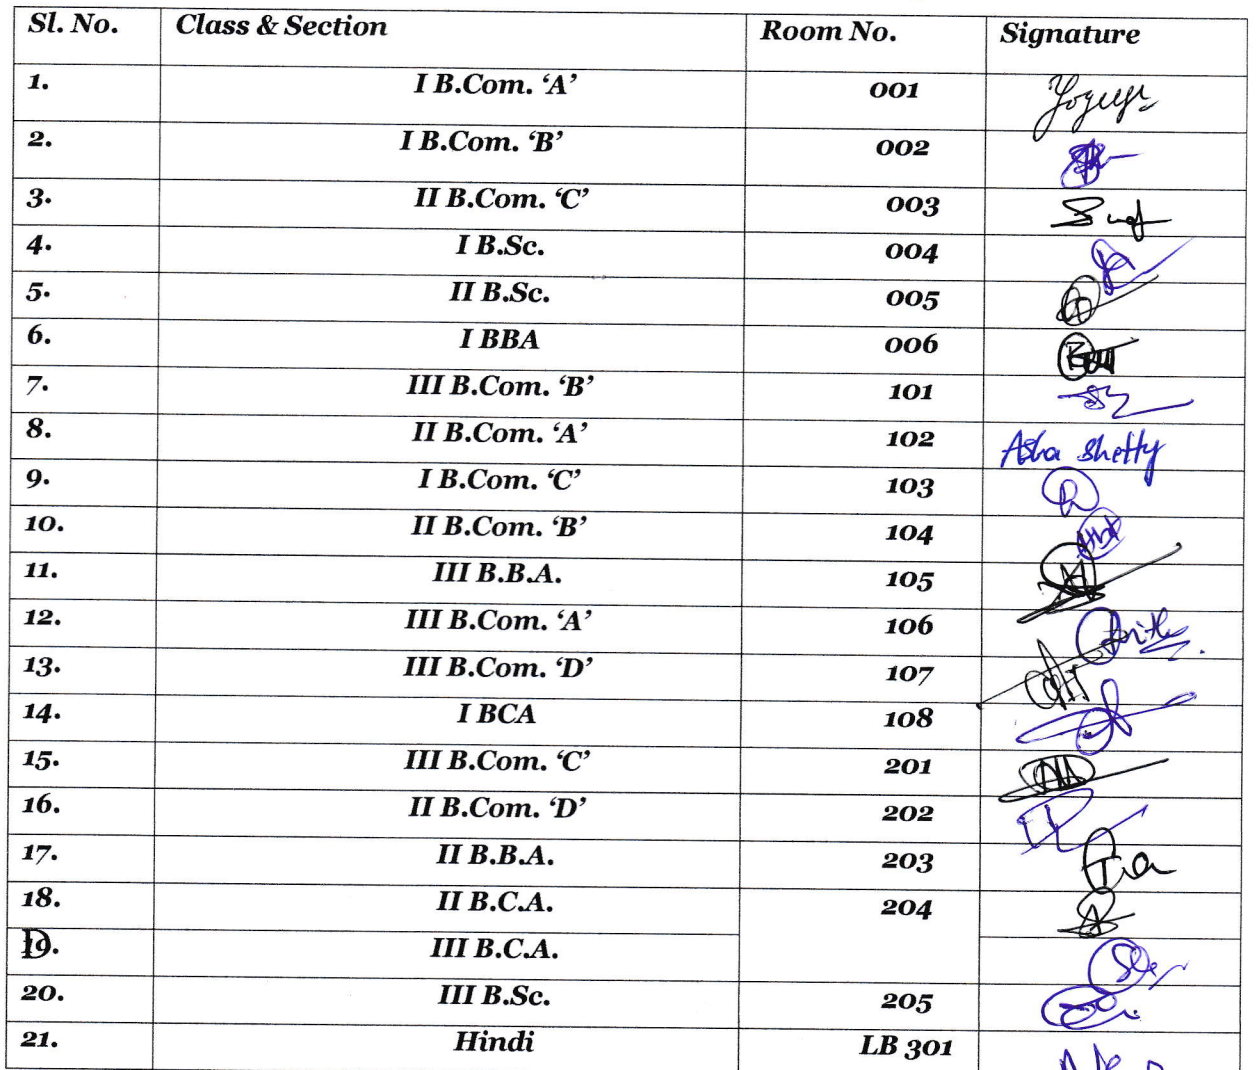 Sl. No. Class & Section Room No. Signature
1. I B.Com. ‘A’ 001
2. I B.Com. ‘B’ 002
3. II B.Com. ‘C’ 003
4. I B.Sc. 004
5. II B.Sc. 005
6. I BBA 006
7. III B.Com. ‘B’ 101
8. II B.Com. ‘A’ 102 Asha Shetty
9. I B.Com. ‘C’ 103
10. II B.Com. ‘B’ 104
11. III B.B.A. 105
12. III B.Com. ‘A’ 106
13. III B.Com. ‘D’ 107
14. I BCA 108
15. III B.Com. ‘C’ 201
16. II B.Com. ‘D’ 202
17. II B.B.A. 203
18. II B.C.A. 204
19. III B.C.A.
20. III B.Sc. 205
21. Hindi LB 301